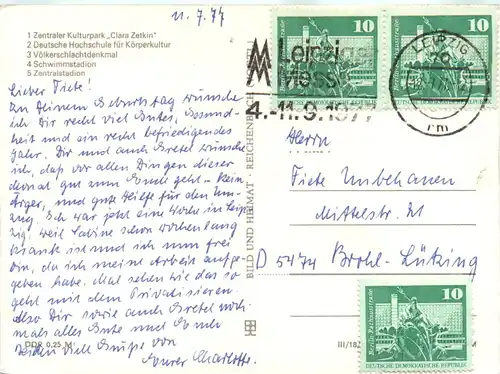 11.7.77
1 Zentraler Kulturpark „Clara Zetkin"
2 Deutsche Hochschule für Körperkultur
3 Völkerschlachtdenkmal
4 Schwimmstadion
5 Zentralstadion
Lieber Fiete!
Zu Deinem Geburtstag wünsche
ich Dir recht viel Gutes, Gesund-
heit und ein recht befriedigendes
Jahr. Dir und auch Gretel wünsche
ich, daß vor allen Dingen dieser
gut zum Ende geht – kein
Ärger, und gute Hilfe für den Um-
zug. Ich war jetzt eine Woche in Leip-
zig, weil Sabine schon wochenlang
krank ist und ich nun frei
bin, da ich meine Arbeit aufge-
geben habe. Mal sehen wie das so
geht mit dem Privatisieren.
Also Dir sowie auch Gretel noch-
mals alles Gute und
beiden viele Grüße von
Eurer Charlotte.
DDR 0,25 M
BILD UND HEIMAT REICHENBACH
MM Leipzig
4.-11.9.1977
LEIPZIG
rm
10
10
DEUTSCHE DEMOKRATISCHE REPUBLIK
DEUTSCHE DEMOKRATISCHE REPUBLIK
Herrn
Fiete Unbehauen
Mittelstr. 21
D 5474 Brohl-Lützing
Berlin, Rathausstraße
10
DEUTSCHE DEMOKRATISCHE REPUBLIK
III/18/